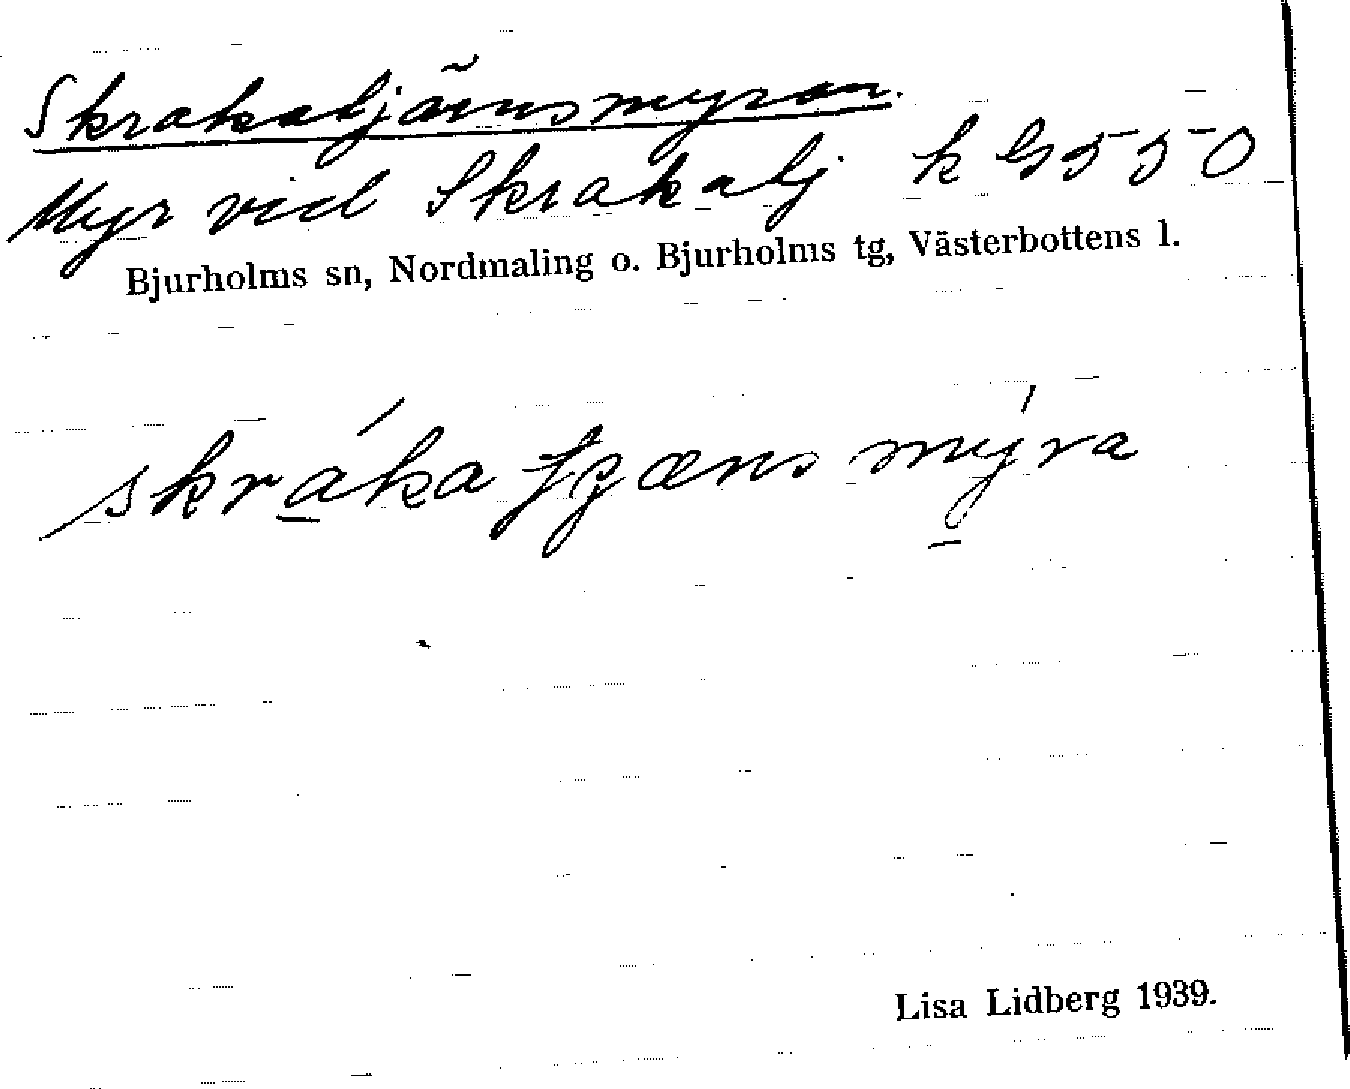 Skrakatjärnsmyran.
Myr vid Skrakatj k G550
Bjurholms sn, Nordmaling o. Bjurholms tg, Västerbottens l.
skráka myra
Lisa Lidberg 1939.